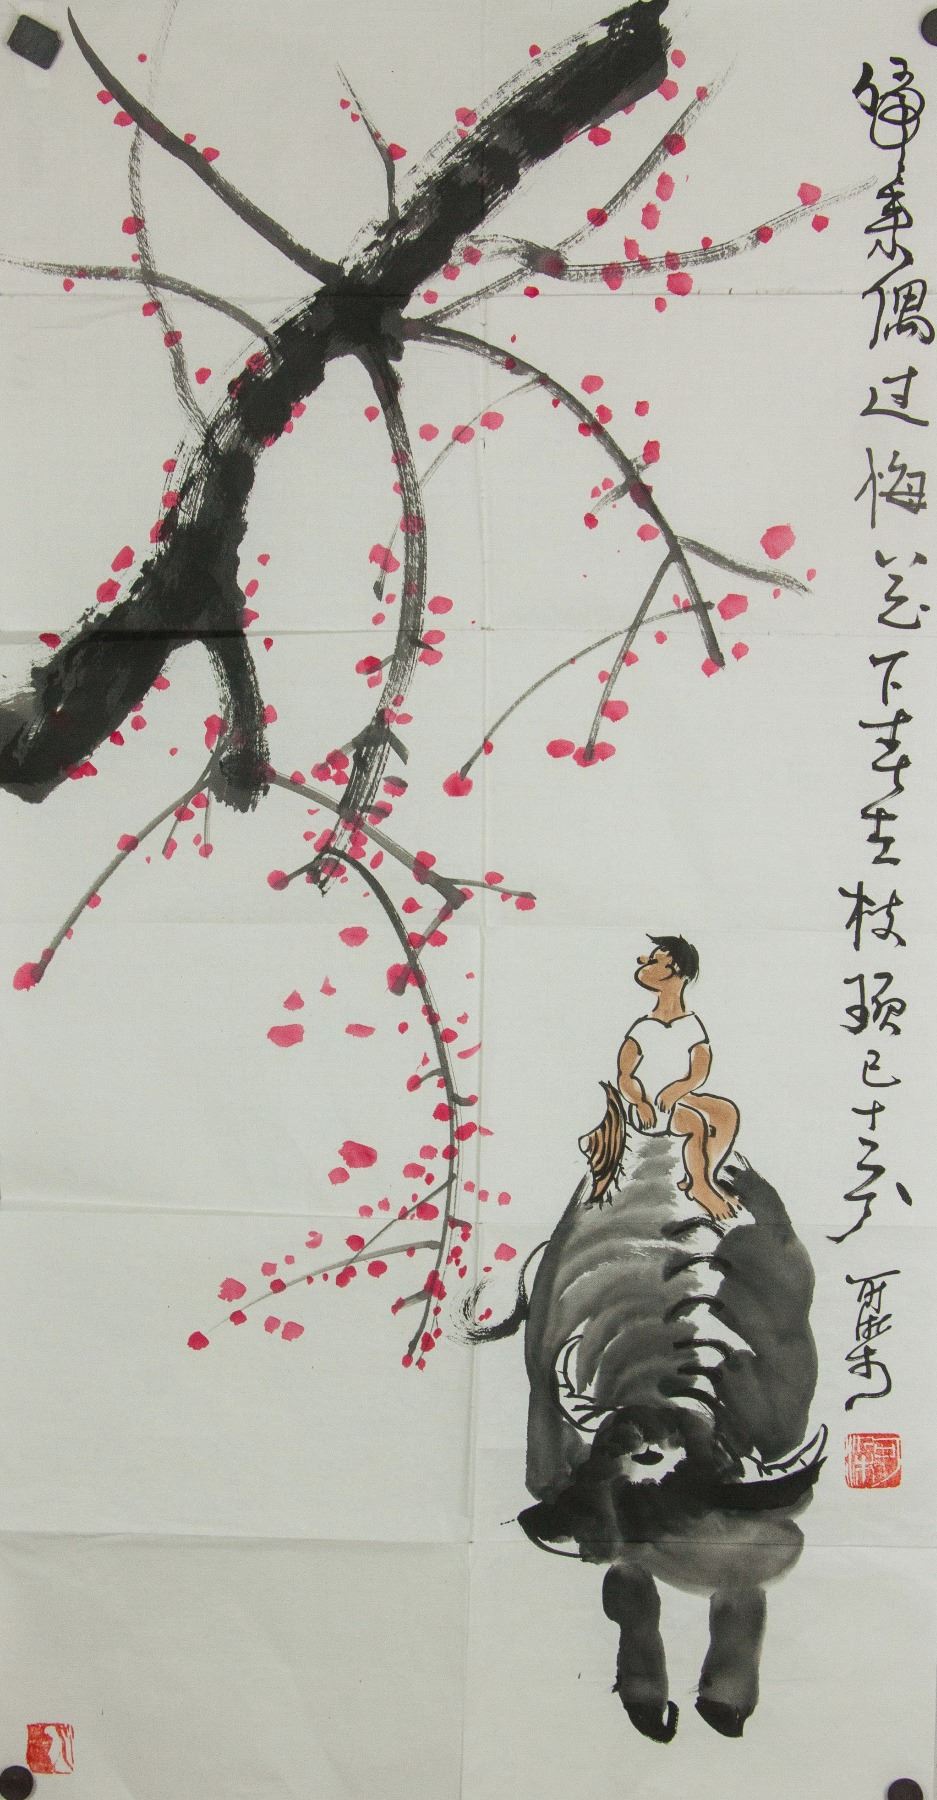 歸来偶过梅花下春在枝頭已十分 可染